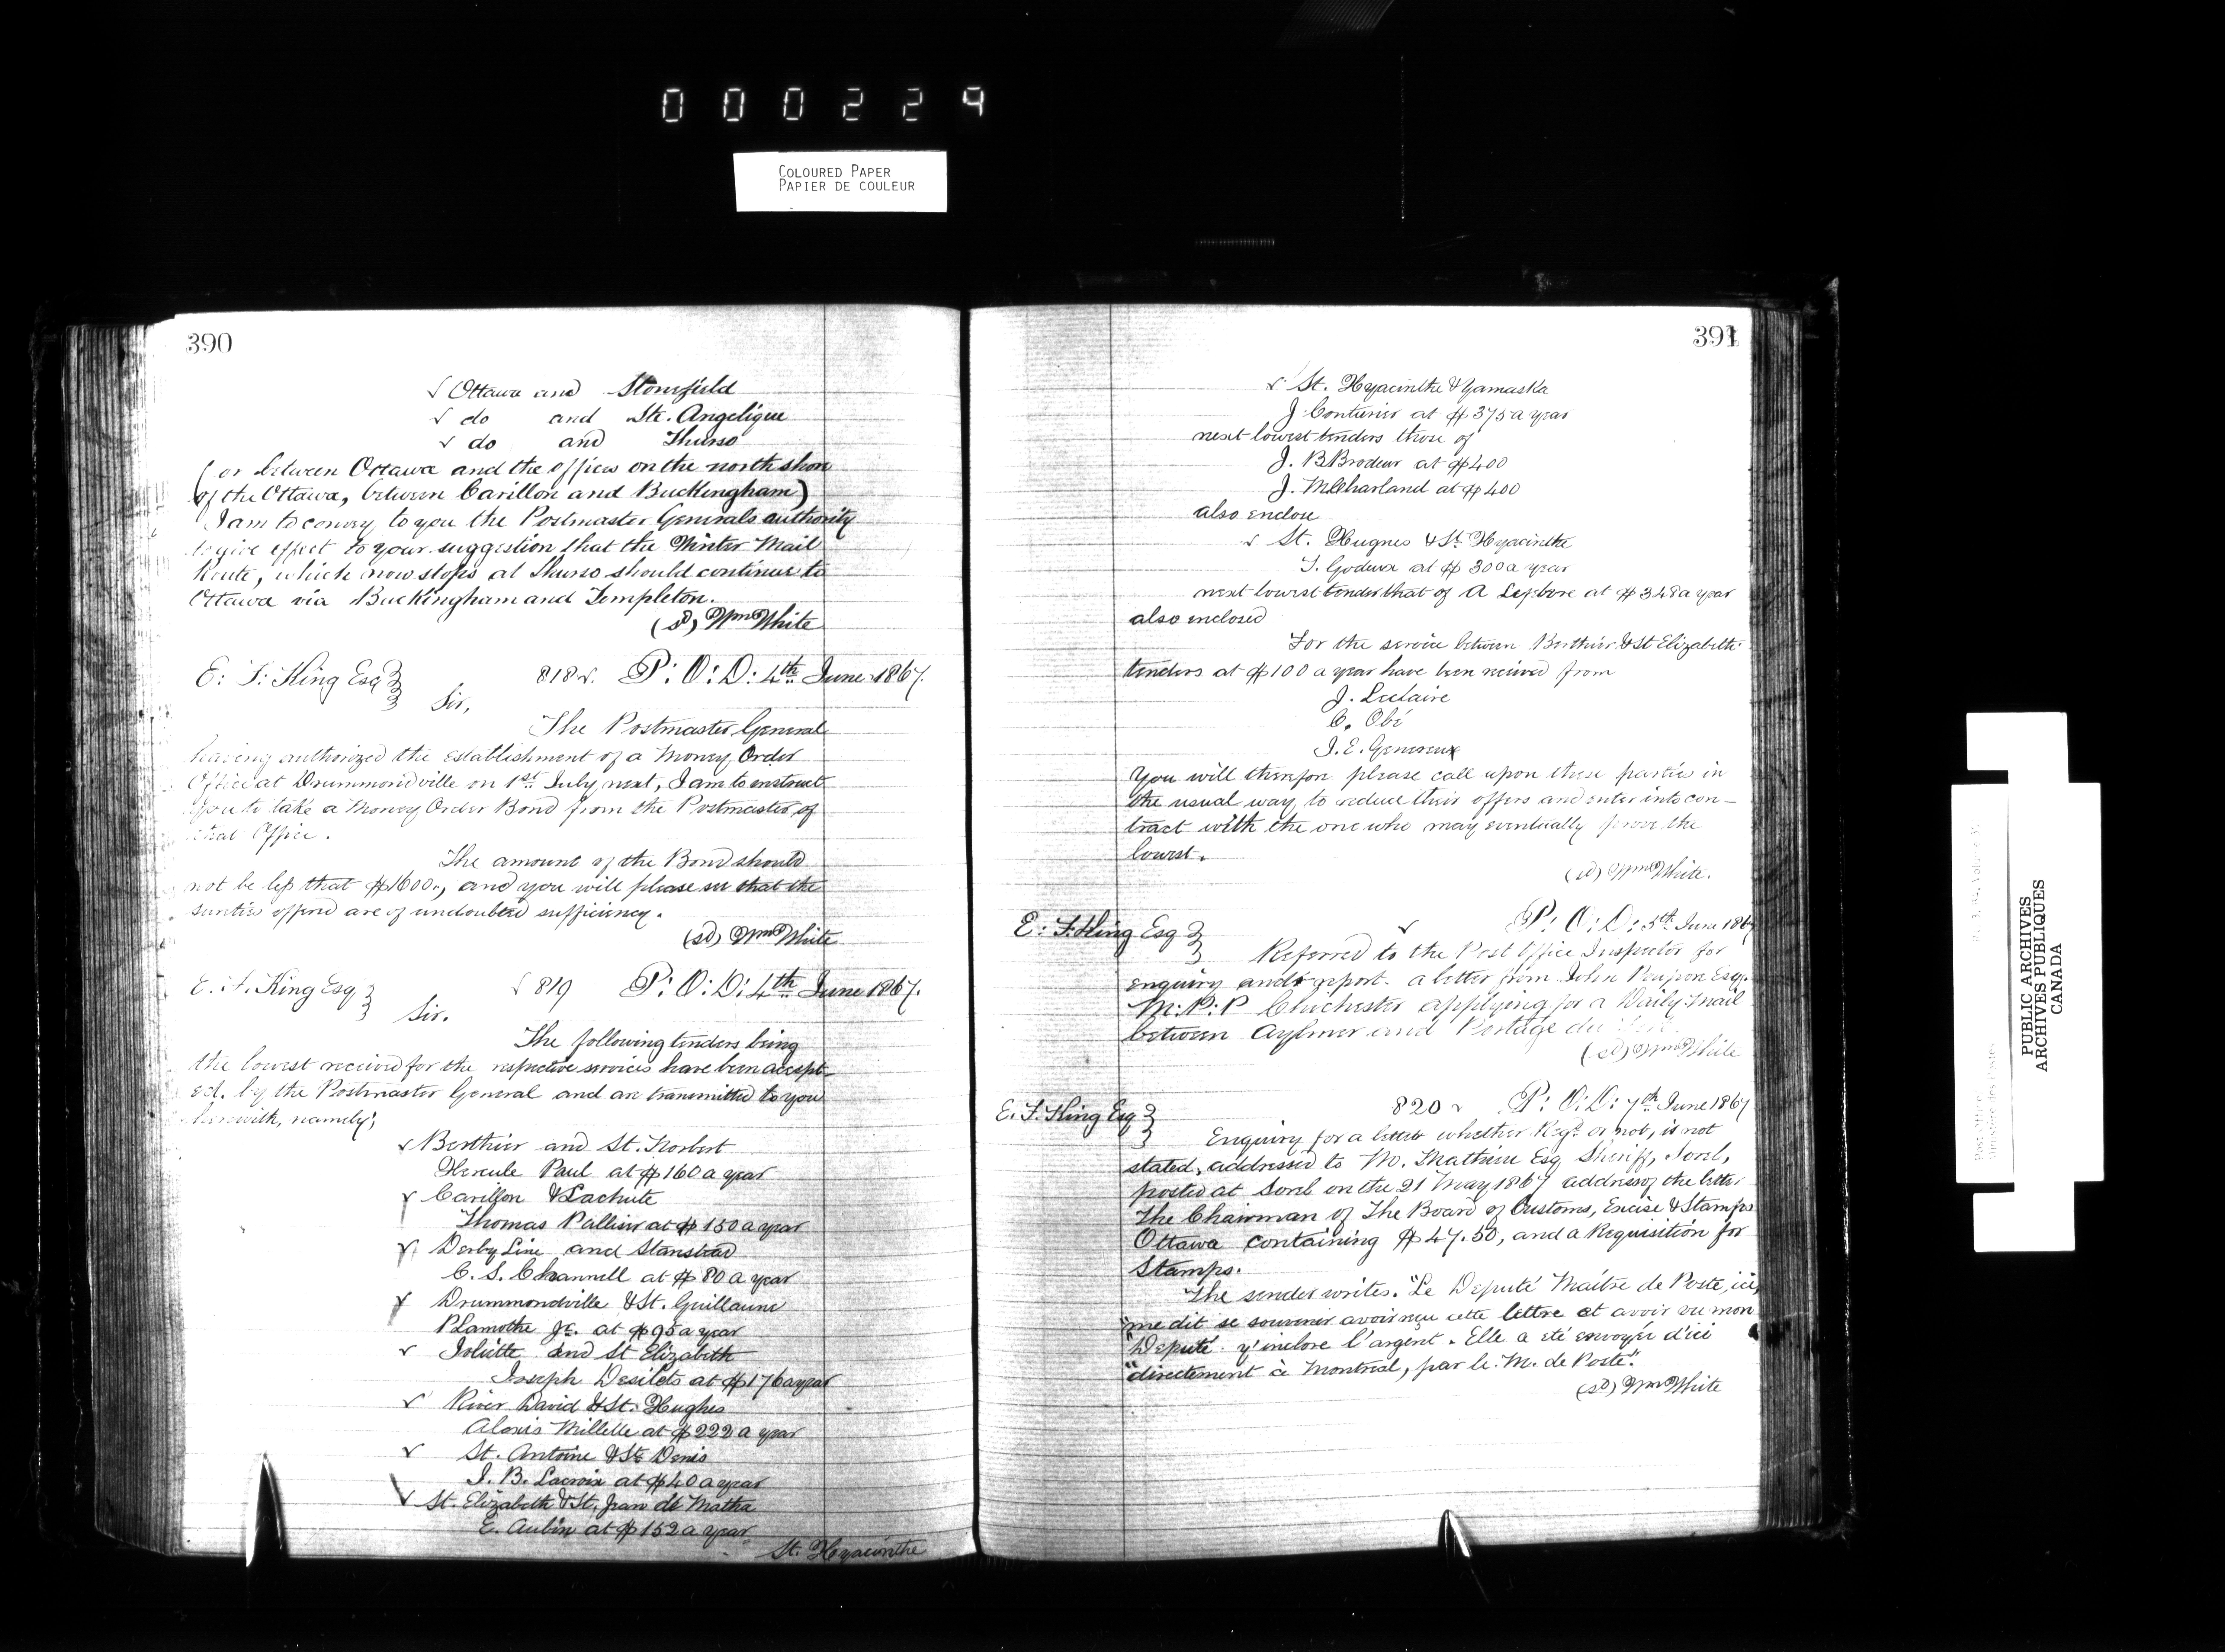 000229
COLOURED PAPER
PAPIER DE COULEUR
390
√ Ottawa and Stonefield
√ do and Ste. Angelique
√ do and Thurso
(or between Ottawa and the offices on the north shore
of the Ottawa, between Carillon and Buckingham)
I am to convey to you the Postmaster Generals authority
to give effect to your suggestion that the Winter Mail
Route, which now stops at Thurso should continue to
Ottawa via Buckingham and Templeton.
(sd) Wm White
E: F: King Esq
818 √. P: O: D: 4th June 1867.
Sir,
The Postmaster General
having authorized the establishment of a Money Order
Office at Drummondville on 1st July next, I am to instruct
you to take a Money Order Bond from the Postmaster of
that Office.
The amount of the Bond should
not be less that $1600., and you will please see that the
sureties offered are of undoubted sufficiency.
(sd) Wm White
E. F. King Esq
√ 819 P: O: D: 4th June 1867.
Sir.
The following tenders being
the lowest received for the respective services have been accept-
ed. by the Postmaster General and are transmitted to you
herewith, namely;
√ Berthier and St. Norbert
Hercule Paul at $160 a year
√ Carillon & Lachute
Thomas Palliser at $150 a year
√ Derby Line and Stanstead
C. S. Channell at $80 a year
√ Drummondville & St. Guillaume
P Lamothe Jr. at $95 a year
√ Joliette and St Elizabeth
Joseph Desilets at $176 a year
√ River David & St. Hughes
Alexis Millette at $222 a year
√ St. Antoine & St. Denis
J. B. Lacroix at $40 a year
√ St. Elizabeth & St. Jean de Matha
E. Aubin at $152 a year
St. Hyacinthe
391
√ St. Hyacinthe & Yamaska
J Couturier at $375 a year
next lowest tenders those of
J. B Brodeur at $400
J. M Charland at $400
also enclose
√ St. Hugues & St. Hyacinthe
T. Godeux at $300 a year
next lowest tender that of A Lefebvre at $348 a year
also enclosed
For the service between Berthier & St Elizabeth
tenders at $100 a year have been received from
J. Leclaire
C. Obé
J. E. Genereux
You will therefore please call upon these parties in
the usual way to reduce their offers and enter into con-
tract with the one who may eventually prove the
lowest.
(sd) Wm White.
E: F. King Esq
√ P: O: D: 5th June 1867
Referred to the Post Office Inspector for
enquiry and report. a letter from John Poupore Esq.
M: P: P Chichester applying for a Daily mail
between Aylmer and Portage du Fort.
(sd) Wm White
E. F. King Esq
820 √ P: O: D: 7th June 1867
Enquiry for a letter whether Regd. or not, is not
stated, addressed to M. Mathieu Esq Sheriff, Sorel,
posted at Sorel on the 21 May 1867 address of the letter
The Chairman of The Board of Customs, Excise & Stamps
Ottawa containing $47.50, and a Requisition for
Stamps.
The sender writes. "Le Deputé Maître de Poste, ici,
"me dit se souvenir avoir reçu cette lettre et avoir vu mon
"Deputé y'inclore l'argent. Elle a eté envoyée d'ici
"directement à Montreal, par le M. de Poste."
(sd) Wm White
PUBLIC ARCHIVES
ARCHIVES PUBLIQUES
CANADA